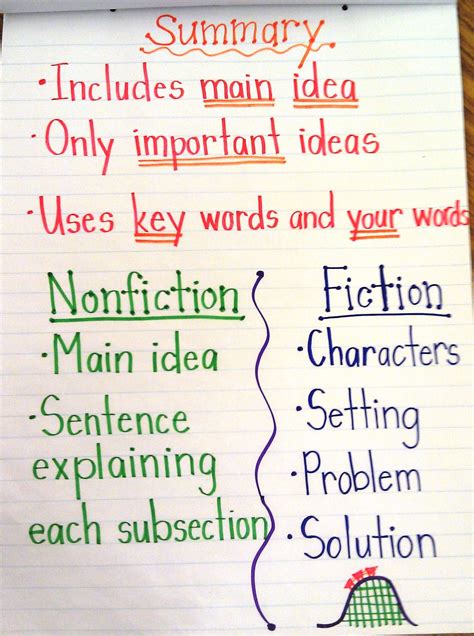 Summary
·Includes main idea
·Only important ideas
·Uses key words and your words
Nonfiction
·Main idea
·Sentence
explaining
each subsection
Fiction
·Characters
·Setting
·Problem
·Solution